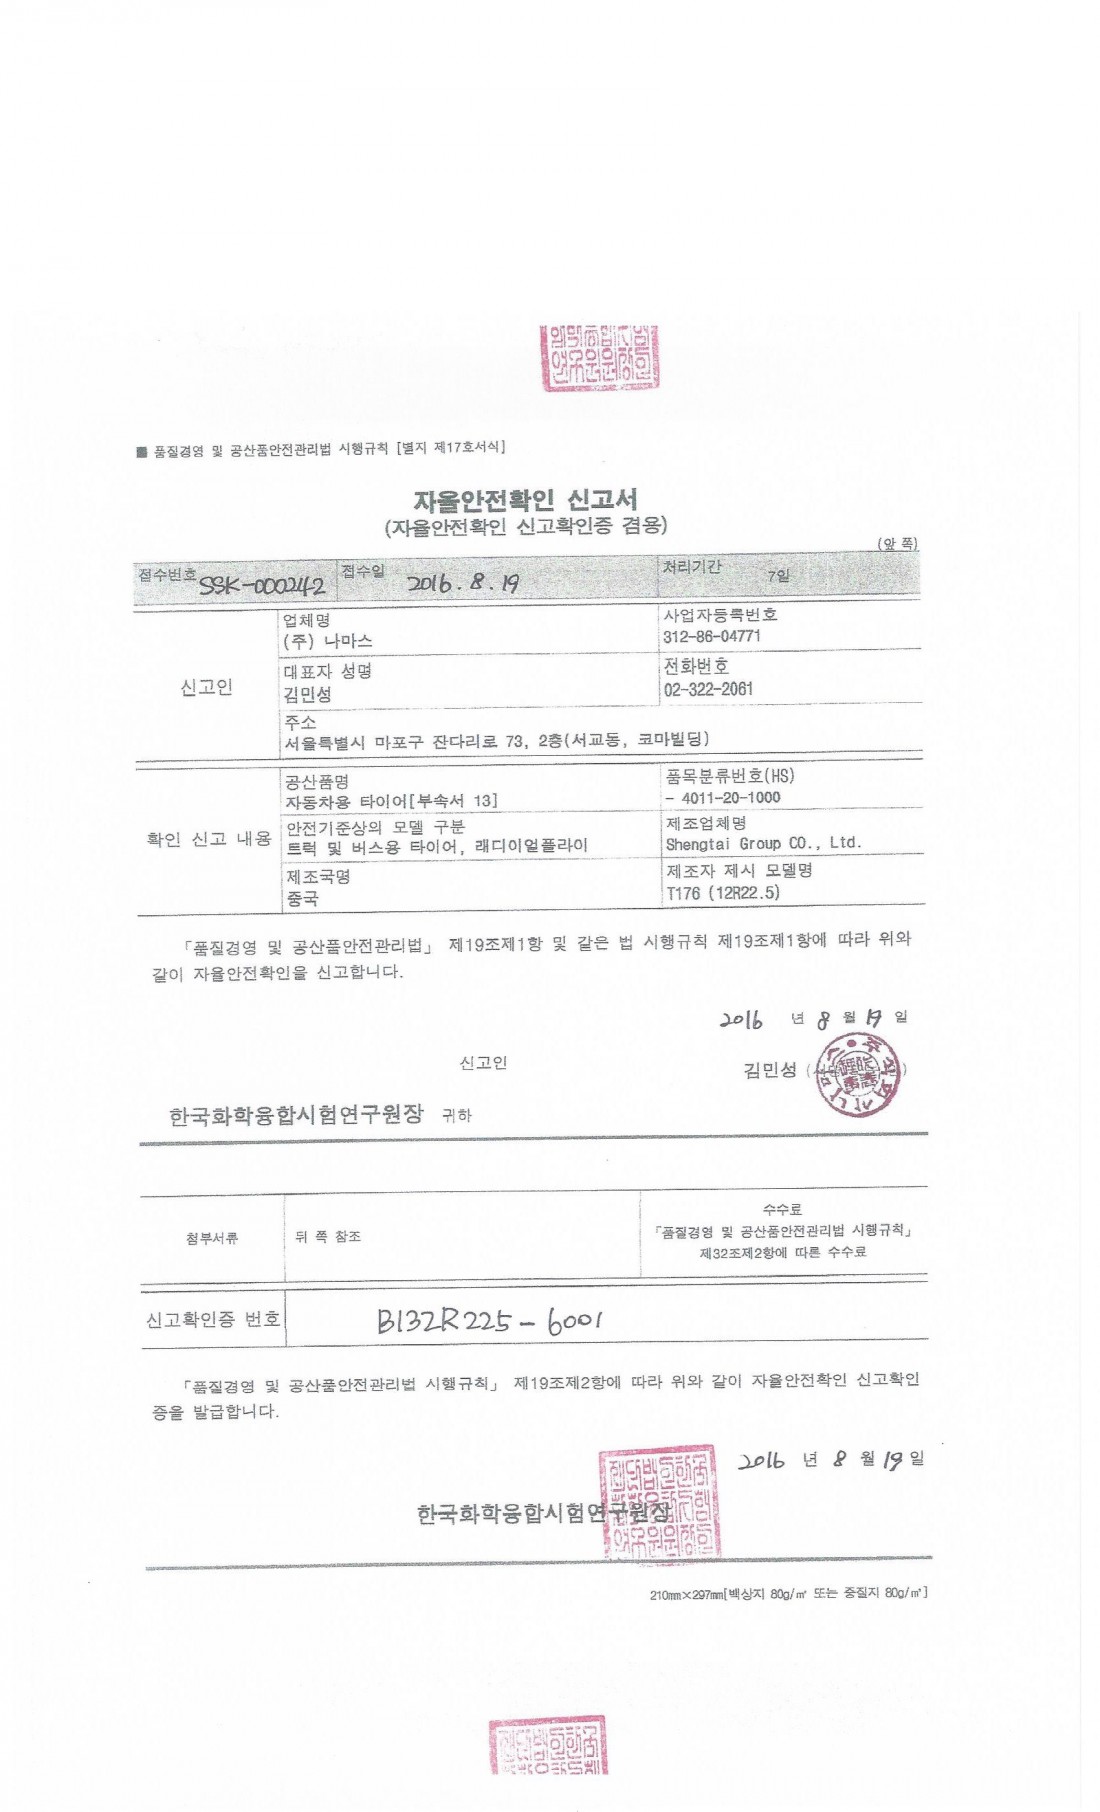 ■ 품질경영 및 공산품안전관리법 시행규칙 [별지 제17호서식]
자율안전확인 신고서
(자율안전확인 신고확인증 겸용)
(앞 쪽)
접수번호 SSK-000242 접수일 2016. 8. 19 처리기간 7일
신고인
업체명
(주) 나마스
사업자등록번호
312-86-04771
대표자 성명
김민성
전화번호
02-322-2061
주소
서울특별시 마포구 잔다리로 73, 2층(서교동, 코마빌딩)
확인 신고 내용
공산품명
자동차용 타이어[부속서 13]
품목분류번호(HS)
- 4011-20-1000
안전기준상의 모델 구분
트럭 및 버스용 타이어, 래디이얼플라이
제조업체명
Shengtai Group CO., Ltd.
제조국명
중국
제조자 제시 모델명
T176 (12R22.5)
「품질경영 및 공산품안전관리법」 제19조제1항 및 같은 법 시행규칙 제19조제1항에 따라 위와
같이 자율안전확인을 신고합니다.
2016 년 8 월 19 일
신고인 김민성
한국화학융합시험연구원장 귀하
첨부서류
뒤 쪽 참조
수수료
「품질경영 및 공산품안전관리법 시행규칙」
제32조제2항에 따른 수수료
신고확인증 번호 B132R225-6001
「품질경영 및 공산품안전관리법 시행규칙」 제19조제2항에 따라 위와 같이 자율안전확인 신고확인
증을 발급합니다.
2016 년 8 월 19 일
한국화학융합시험연구원장
210mm×297mm[백상지 80g/㎡ 또는 중질지 80g/㎡]